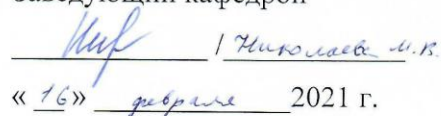 Заведующий кафедрой
/ Николаева М.В.
« 16» февраля 2021 г.